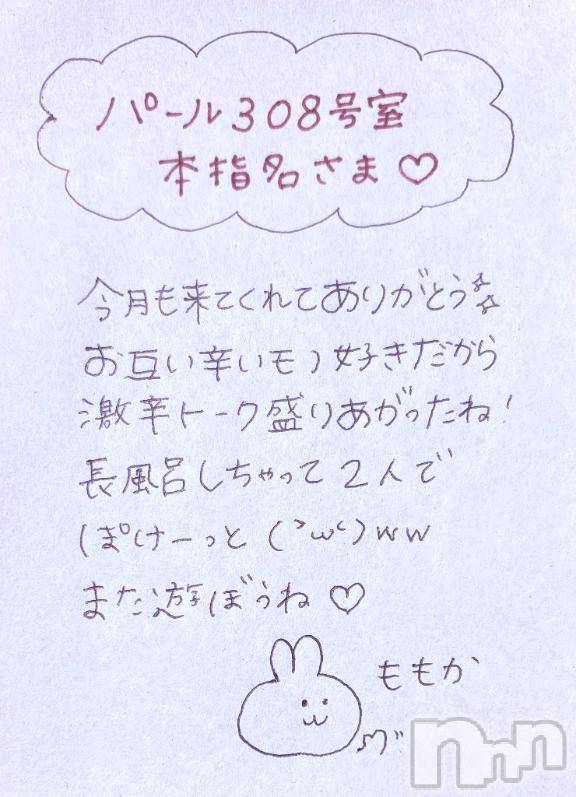 パール308号室
本指名さま♡
今月も来てくれてありがとう
お互い辛いモノ好きだから
激辛トーク盛りあがったね!
長風呂しちゃって2人で
ぽけーっと(´ω`)ww
また遊ぼうね♡
ももか
nnn